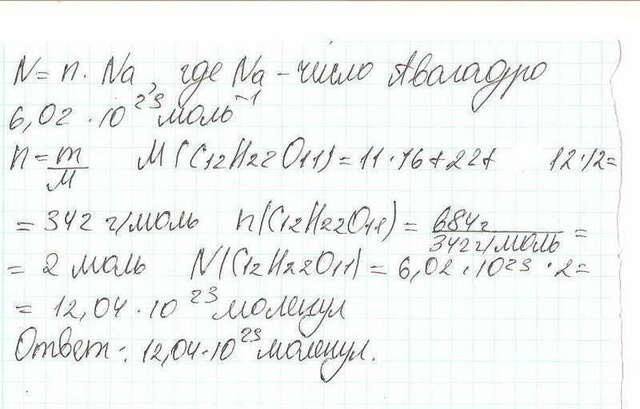 N = n · Na, где Na - число Авогадро
6,02 · 10²³ моль⁻¹
n = m/M M(C12H22O11) = 11·16+22+ 12·12=
= 342 г/моль n(C12H22O11) = 684г/342г/моль =
= 2 моль N(C12H22O11) = 6,02·10²³·2=
= 12,04·10²³ молекул
Ответ: 12,04·10²³ молекул.